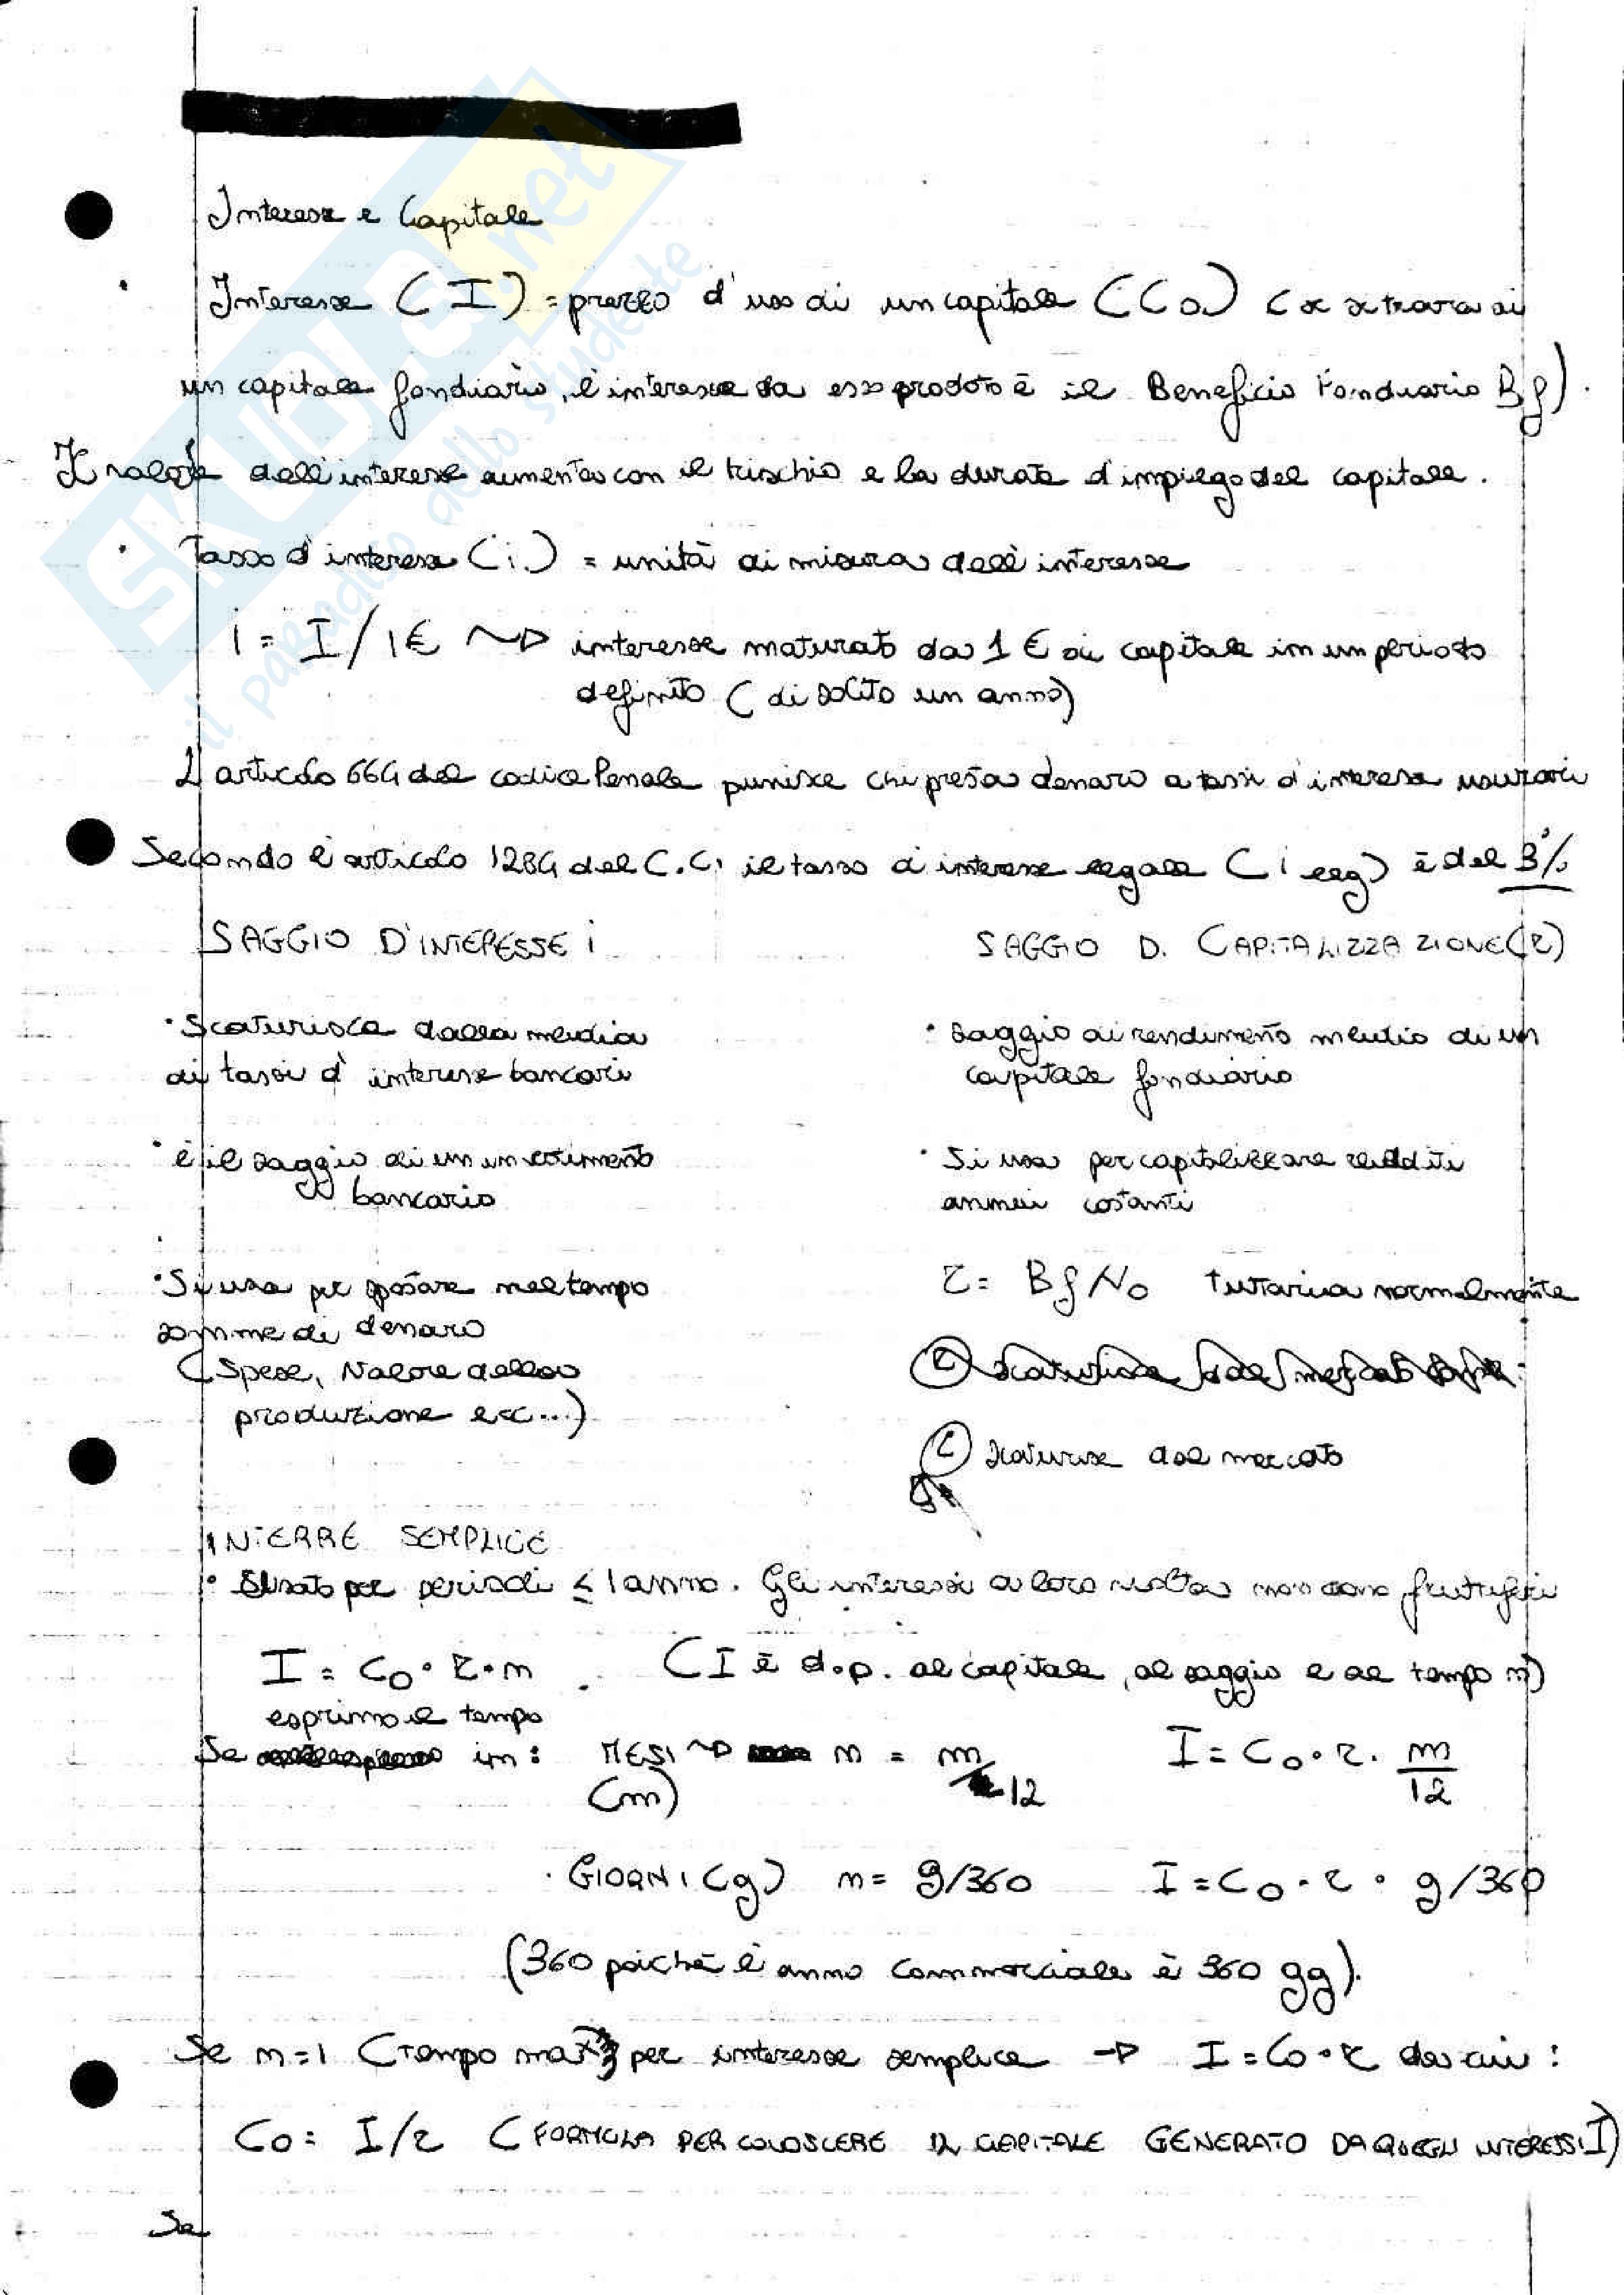 Interesse e Capitale
· Interesse (I) = prezzo d'uso di un capitale (Co) (se si tratta di
un capitale fondiario, l'interesse da esso prodotto è il Beneficio Fondiario Bf).
Il valore dell'interesse aumenta con il rischio e la durata d'impiego del capitale.
· Tasso d'interesse (i) = unità di misura dell'interesse
i = I/1€ ~> interesse maturato da 1 € di capitale in un periodo
definito (di solito un anno)
L'articolo 664 del codice Penale punisce chi presta denaro a tassi d'interesse usurari
Secondo l'articolo 1284 del C.C. il tasso d'interesse legale (i leg) è del 3%
SAGGIO D'INTERESSE i
SAGGIO DI CAPITALIZZAZIONE (r)
· Scaturisce dalla media
di tassi d'interesse bancari
· saggio di rendimento medio di un
capitale fondiario
· è il saggio di un investimento
bancario
· Si usa per capitalizzare redditi
annui costanti
· Si usa per spostare nel tempo
somme di denaro
(Spese, Valore della
produzione ecc...)
r = Bf/Vo tuttavia normalmente
r scaturisce dal mercato
INTERRE SEMPLICE
· Usato per periodi ≤ 1 anno. Gli interessi a loro volta non sono fruttiferi
I = Co · r · n (I è d.p. al capitale, al saggio e al tempo n)
esprimo il tempo
Se in: MESI ~> n = m/12 I = Co · r · m/12
(m)
· GIORNI (g) n = g/360 I = Co · r · g/360
(360 poiché l'anno commerciale è 360 gg).
Se n=1 (tempo max per interesse semplice -> I = Co · r da cui:
Co = I/r (FORMULA PER CONOSCERE IL CAPITALE GENERATO DA QUEGLI INTERESSI I)
Se
SKUOLA.net
il paradiso dello studente